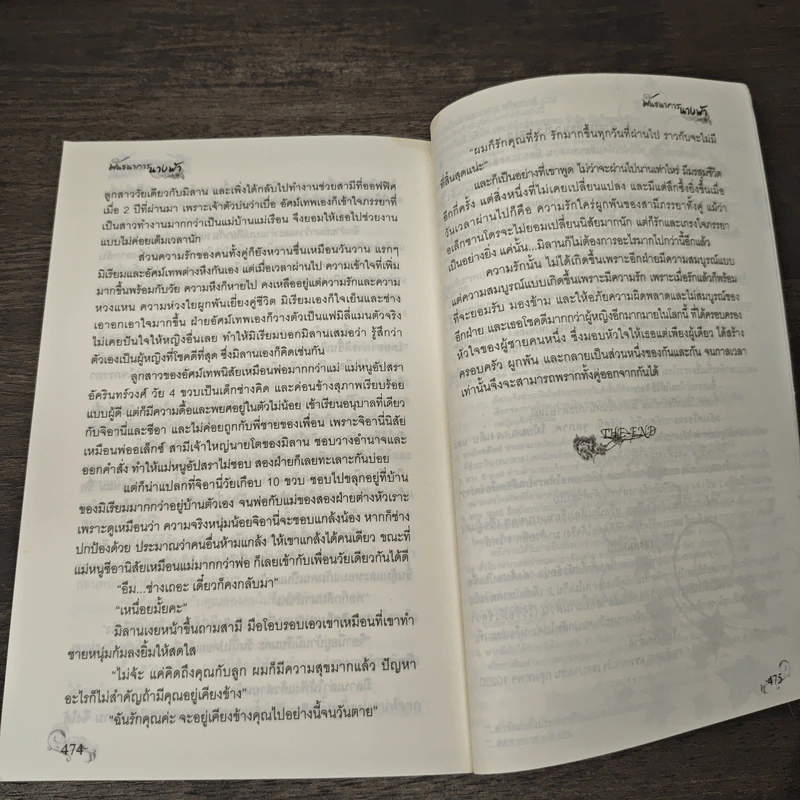 พันธนาการนางฟ้า
ลูกสาววัยเดียวกับมิลาน และเพิ่งได้กลับไปทำงานช่วยสามีที่ออฟฟิศ
เมื่อ 2 ปีที่ผ่านมา เพราะเจ้าตัวบ่นว่าเบื่อ อัศม์เทพเองก็เข้าใจภรรยาที่
เป็นสาวทำงานมากกว่าเป็นแม่บ้านแม่เรือน จึงยอมให้เธอไปช่วยงาน
แบบไม่ค่อยเต็มเวลานัก
ส่วนความรักของคนทั้งคู่ก็ยังหวานชื่นเหมือนวันวาน แรกๆ
มิเรียมและอัศม์เทพต่างหึงกันเอง แต่เมื่อเวลาผ่านไป ความเข้าใจที่เพิ่ม
มากขึ้นพร้อมกับวัย ความหึงก็หายไป คงเหลืออยู่แต่ความรักและความ
หวงแหน ความห่วงใยผูกพันเยี่ยงคู่ชีวิต มิเรียมเองก็ใจเย็นและช่าง
เอาอกเอาใจมากขึ้น ฝ่ายอัศม์เทพเองก็วางตัวเป็นแฟมิลี่แมนตัวจริง
ไม่เคยปันใจให้หญิงอื่นเลย ทำให้มิเรียมบอกมิลานเสมอว่า รู้สึกว่า
ตัวเองเป็นผู้หญิงที่โชคดีที่สุด ซึ่งมิลานเองก็คิดเช่นกัน
ลูกสาวของอัศม์เทพนิสัยเหมือนพ่อมากกว่าแม่ แม่หนูอัปสรา
อัครินทร์วงศ์ วัย 4 ขวบเป็นเด็กช่างคิด และค่อนข้างสุภาพเรียบร้อย
แบบผู้ดี แต่ก็มีความดื้อและพยศอยู่ในตัวไม่น้อย เข้าเรียนอนุบาลที่เดียว
กับจิอานี่และซีอา และไม่ค่อยถูกกับพี่ชายของเพื่อน เพราะจิอานี่นิสัย
เหมือนพ่ออเล็กซ์ สามีเจ้าใหญ่นายโตของมิลาน ชอบวางอำนาจและ
ออกคำสั่ง ทำให้แม่หนูอัปสราไม่ชอบ สองฝ่ายก็เลยทะเลาะกันบ่อย
แต่ก็น่าแปลกที่จิอานี่วัยเกือบ 10 ขวบ ชอบไปขลุกอยู่ที่บ้าน
ของมิเรียมมากกว่าอยู่บ้านตัวเอง จนพ่อกับแม่ของสองฝ่ายต่างหัวเราะ
เพราะดูเหมือนว่า ความจริงหนุ่มน้อยจิอานี่จะชอบแกล้งน้อง หากก็ช่าง
ปกป้องด้วย ประมาณว่าคนอื่นห้ามแกล้ง ให้เขาแกล้งได้คนเดียว ขณะที่
แม่หนูซีอานิสัยเหมือนแม่มากกว่าพ่อ ก็เลยเข้ากับเพื่อนวัยเดียวกันได้ดี
“อืม...ช่างเถอะ เดี๋ยวก็คงกลับมา”
“เหนื่อยมั้ยคะ”
มิลานเงยหน้าขึ้นถามสามี มือโอบรอบเอวเขาเหมือนที่เขาทำ
ชายหนุ่มก้มลงยิ้มให้สดใส
“ไม่จ้ะ แค่คิดถึงคุณกับลูก ผมก็มีความสุขมากแล้ว ปัญหา
อะไรก็ไม่สำคัญถ้ามีคุณอยู่เคียงข้าง”
“ฉันรักคุณค่ะ จะอยู่เคียงข้างคุณไปอย่างนี้จนวันตาย”
474
พันธนาการนางฟ้า
“ผมก็รักคุณที่รัก รักมากขึ้นทุกวันที่ผ่านไป ราวกับจะไม่มี
ที่สิ้นสุดแน่ะ”
และก็เป็นอย่างที่เขาพูด ไม่ว่าจะผ่านไปนานเท่าไหร่ มีมรสุมชีวิต
อีกกี่ครั้ง แต่สิ่งหนึ่งที่ไม่เคยเปลี่ยนแปลง และมีแต่ลึกซึ้งยิ่งขึ้นเมื่อ
วันเวลาผ่านไปก็คือ ความรักใคร่ผูกพันของสามีภรรยาทั้งคู่ แม้ว่า
อเล็กซานโดรจะไม่ยอมเปลี่ยนนิสัยมากนัก แต่ก็รักและเกรงใจภรรยา
เป็นอย่างยิ่ง แค่นั้น...มิลานก็ไม่ต้องการอะไรมากไปกว่านี้อีกแล้ว
ความรักนั้น ไม่ได้เกิดขึ้นเพราะอีกฝ่ายมีความสมบูรณ์แบบ
แต่ความสมบูรณ์แบบเกิดขึ้นเพราะมีความรัก เพราะเมื่อรักแล้วก็พร้อม
ที่จะยอมรับ มองข้าม และให้อภัยความผิดพลาดและไม่สมบูรณ์ของ
อีกฝ่าย และเธอโชคดีมากกว่าผู้หญิงอีกมากมายในโลกนี้ ที่ได้ครอบครอง
หัวใจของผู้ชายคนหนึ่ง ซึ่งมอบหัวใจให้เธอแต่เพียงผู้เดียว ได้สร้าง
ครอบครัว ผูกพัน และกลายเป็นส่วนหนึ่งของกันและกัน จนกาลเวลา
เท่านั้นจึงจะสามารถพรากทั้งคู่ออกจากกันได้
THE END
475